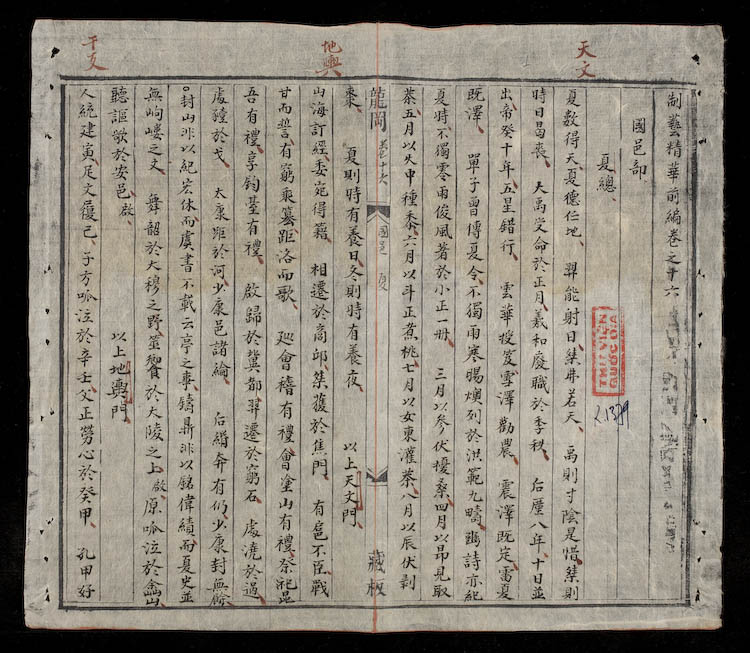 天文
地輿
干支
制藝精華前編卷之十六
國邑部
夏總
夏數得天夏德仁地、羿能射日桀井若天、禹則寸陰是惜桀則
時日曷喪、大禹受命於正月羲和廢職於季秋、后厘八年、十日並
出帝癸十年五星錯行、雲華授笈雪澤勸農、震澤既定雷夏
既澤、單子曾傳夏令、不獨雨寒暘燠列於洪範九疇、豳詩亦紀
夏時不獨零雨俊風著於小正一冊、三月以參伏擾桑四月以昴見取
荼五月以火中種黍六月以斗正煮桃七月以女東灌荼八月以辰伏剥
棗、夏則時有養日冬則時有養夜、以上天文門
龍岡 卷十六 國邑 夏 藏板
山海訂經委宛得籍、相遷於商邱桀覆於焦門、有扈不臣戰
甘而誓有窮乘篡距洛而歌、廵會稽有禮會塗山有禮祭祀昆
吾有禮享鈞臺有禮、啟歸於冀都羿遷於窮石、處澆於過
處豷於戈、太康距於河少康邑諸綸、后緡奔有仍少康封無餘
封山非以紀宏休而虞書不載云亭之事鑄鼎非以銘偉績而夏史並
無岣嶁之文、舞韶於大穆之野筮於大陵之上啟、原呱泣於山
聽謳歌於安邑啟、以上地輿門
人統建寅足文履己、子方呱泣於辛壬父正勞心於癸甲、孔甲好
THƯ VIỆN
QUỐC GIA
R.1379